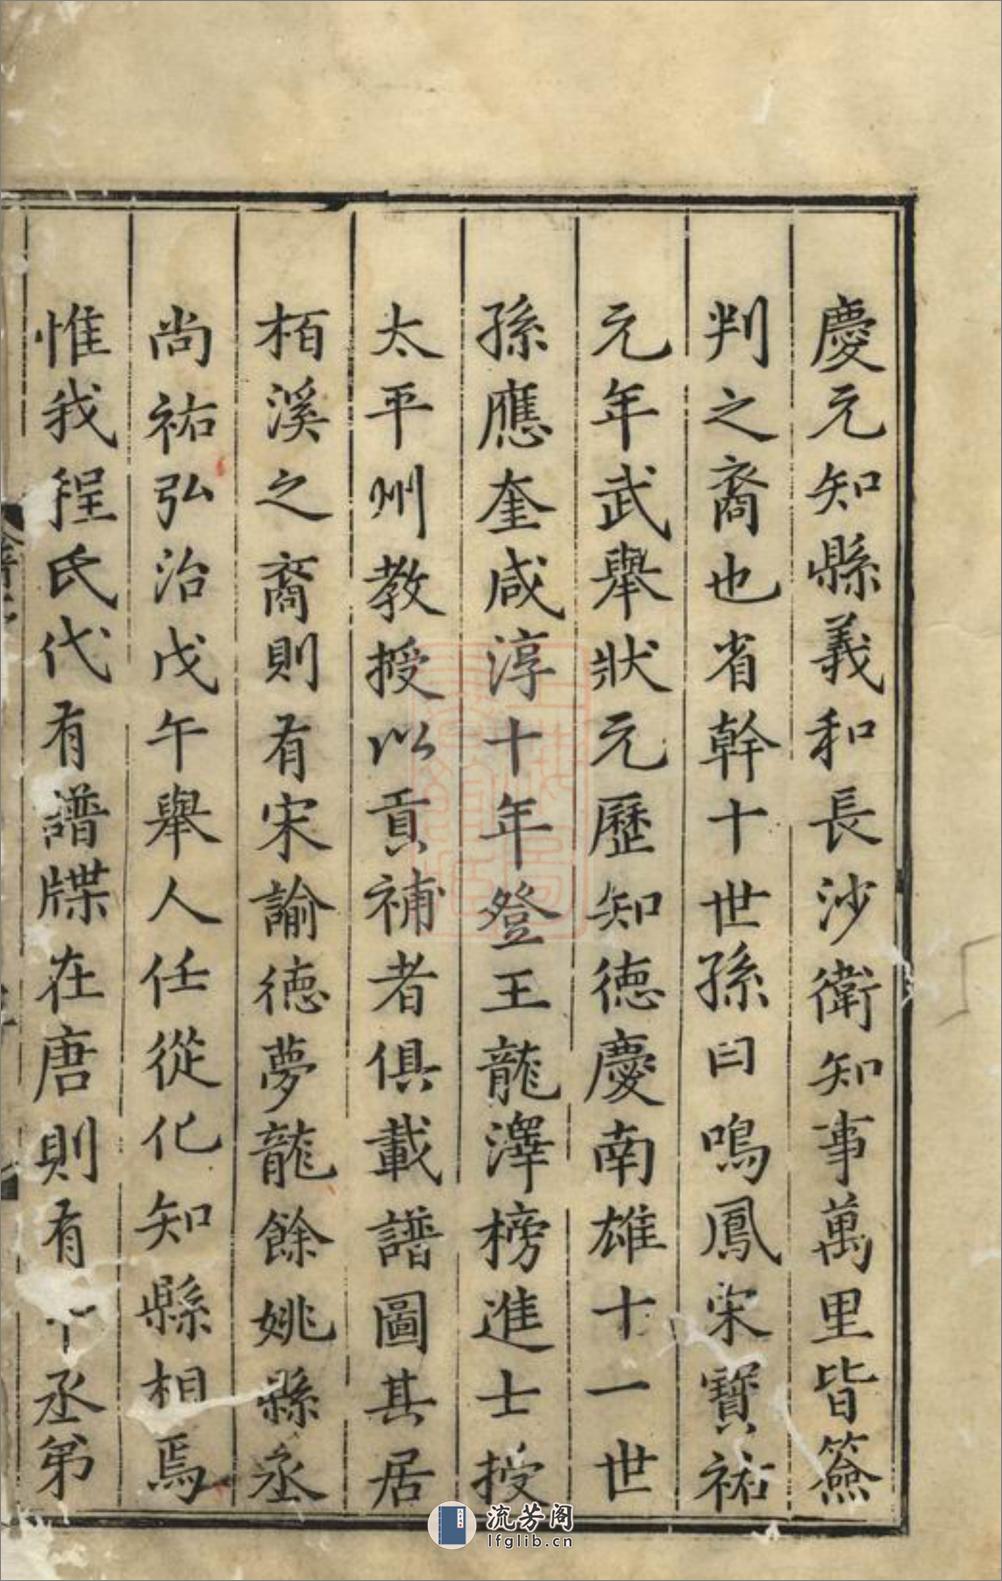 慶元知縣義和長沙衛知事萬里皆簽
判之裔也省幹十世孫曰鳴鳳宋寶祐
元年武舉狀元歷知德慶南雄十一世
孫應奎咸淳十年登王龍澤榜進士授
太平州教授以貢補者俱載譜圖其居
栢溪之裔則有宋諭德夢龍餘姚縣丞
尚祐弘治戊午舉人任從化知縣相焉
惟我程氏代有譜牒在唐則有中丞第
流芳阁
lfglib.cn